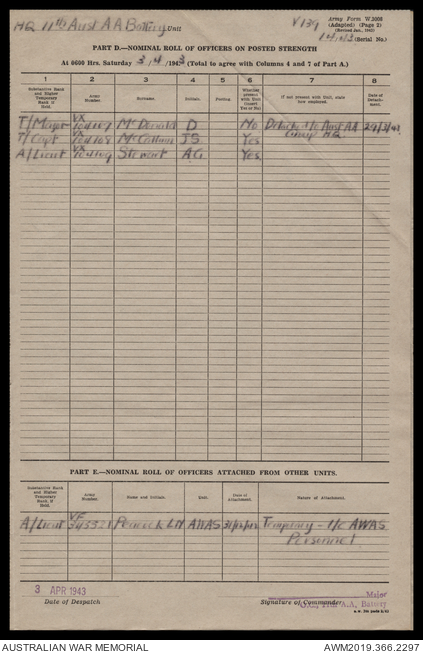 HQ 11th Aust A A Battery Unit
V139
Army Form W.3008
(Adapted) (Page 2)
(Revised Jan., 1943)
(Serial No.)
PART D.—NOMINAL ROLL OF OFFICERS ON POSTED STRENGTH
At 0600 Hrs. Saturday 3/4/1943 (Total to agree with Columns 4 and 7 of Part A.)
1 2 3 4 5 6 7 8
Substantive Rank and Higher Temporary Rank if Held.
Army Number.
Surname.
Initials.
Posting.
Whether present with Unit (insert Yes or No)
If not present with Unit, state how employed.
Date of Detachment.
T/Major VX McDonald D No Detached to Aust AA Group HQ 29/3/43
T/Capt VX McCallum JS Yes
A/Lieut VX Stewart AG Yes
PART E.—NOMINAL ROLL OF OFFICERS ATTACHED FROM OTHER UNITS.
Substantive Rank and Higher Temporary Rank, if Held.
Army Number.
Name and Initials.
Unit.
Date of Attachment.
Nature of Attachment.
A/Lieut VF Peacock LN AWAS 31/12/42 Temporary - i/c AWAS
Personnel
3 APR 1943
Date of Despatch
Signature of Commander
Major
A.A. Battery
AUSTRALIAN WAR MEMORIAL
AWM2019.366.2297